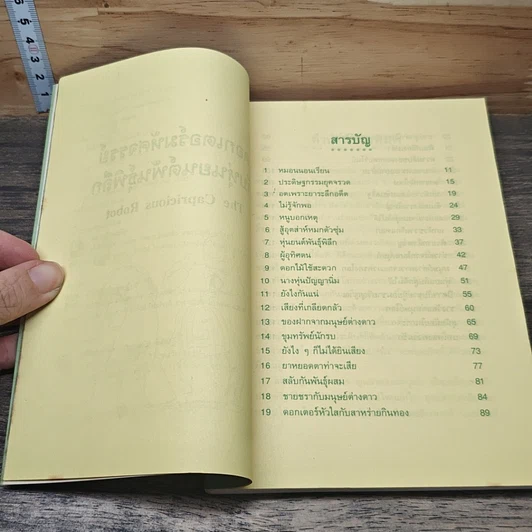 5
5
4
3
2
1
The Capricious Robot
สารบัญ
1 หมอนนอนเรียน 11
2 ประดิษฐกรรมยุคจรวด 15
3 อดเพราะยาระลึกอดีต 19
4 ไม่รู้จักพอ 24
5 หนูบอกเหตุ 29
6 สู้อุตส่าห์หมกตัวซุ่ม 33
7 หุ่นยนต์พันธุ์พิลึก 37
8 ผู้อุทิศตน 42
9 ดอกไม้ใช้สะดวก 47
10 นางหุ่นปัญญานิ่ม 51
11 ยังไงกันแน่ 55
12 เสียงที่เกลียดกลัว 60
13 ของฝากจากมนุษย์ต่างดาว 65
14 ขุมทรัพย์นักรบ 69
15 ยังไง ๆ ก็ไม่ได้ยินเสียง 73
16 ยาหยอดตาท่าจะเสีย 77
17 สลับกันพันธุ์ผสม 81
18 ชายชรากับมนุษย์ต่างดาว 84
19 ดอกเตอร์หัวใสกับสาหร่ายกินทอง 89